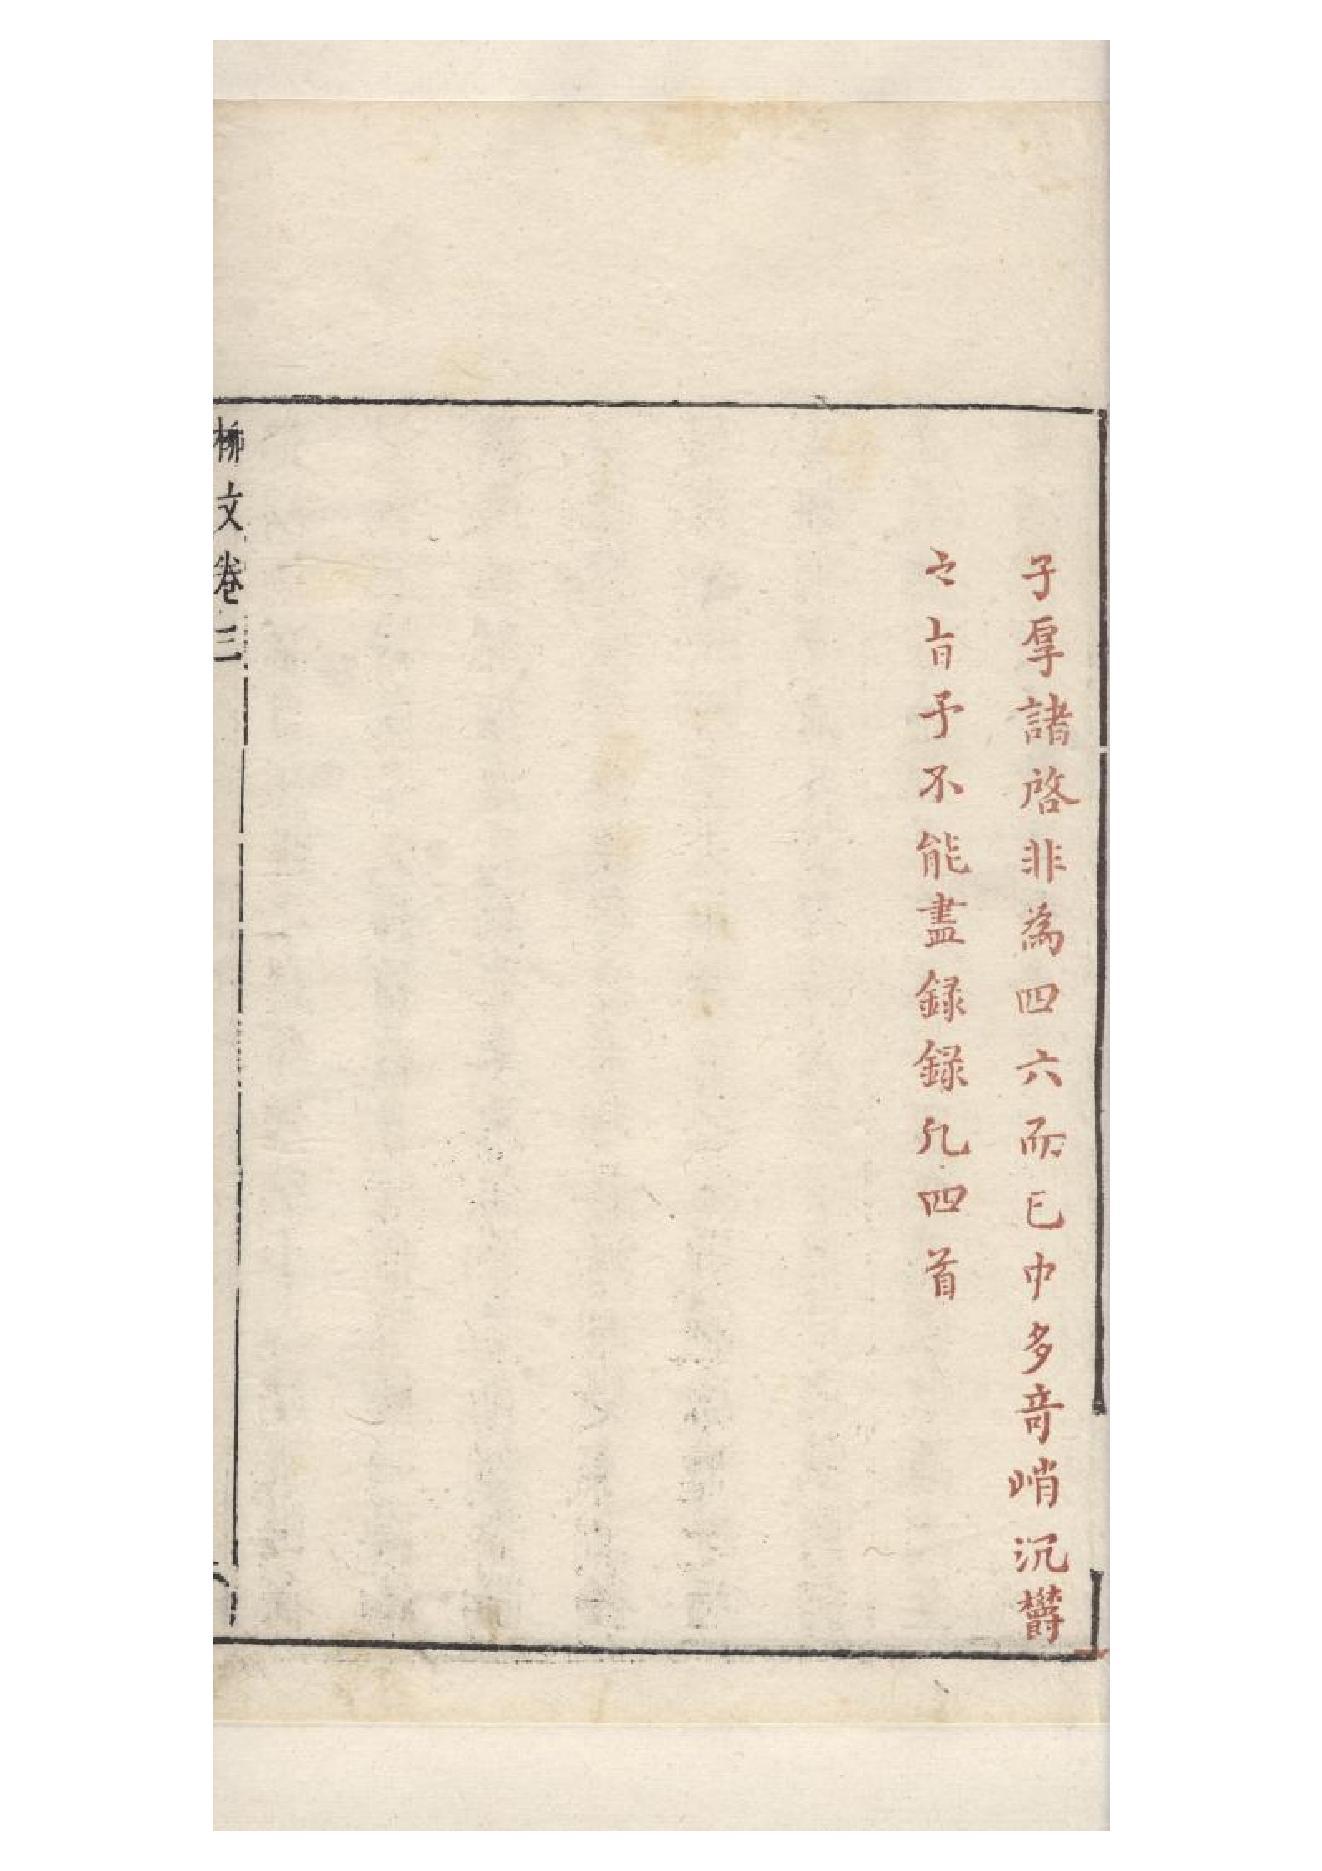 子厚諸啓非為四六而已中多竒峭沉欝
之旨予不能盡録録凡四首
柳文卷三